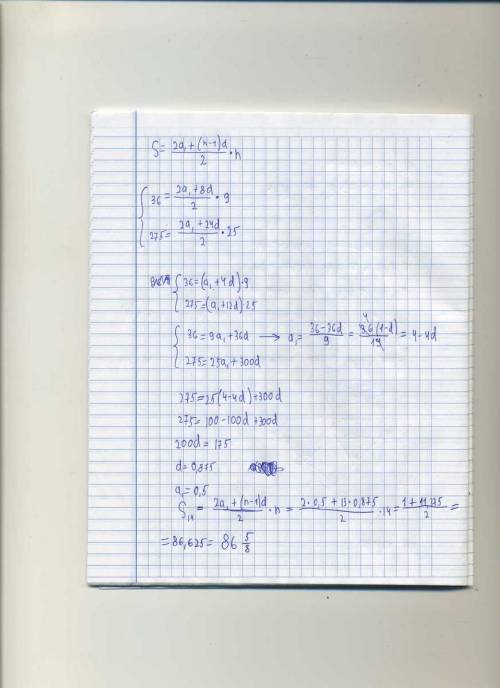 S = (2a₁ + (n-1)d)/2 · n
{ 36 = (2a₁ + 8d)/2 · 9
275 = (2a₁ + 24d)/2 · 25
{ 36 = (a₁ + 4d) · 9
275 = (a₁ + 12d) · 25
{ 36 = 9a₁ + 36d → a₁ = (36 - 36d)/9 = 36(1-d)/9 = 4 - 4d
275 = 25a₁ + 300d
275 = 25(4 - 4d) + 300d
275 = 100 - 100d + 300d
200d = 175
d = 0,875
a₁ = 0,5
S₁₄ = (2a₁ + (n-1)d)/2 · n = (2 · 0,5 + 13 · 0,875)/2 · 14 = (1 + 11,375)/2 =
= 86,625 = 86 5/8